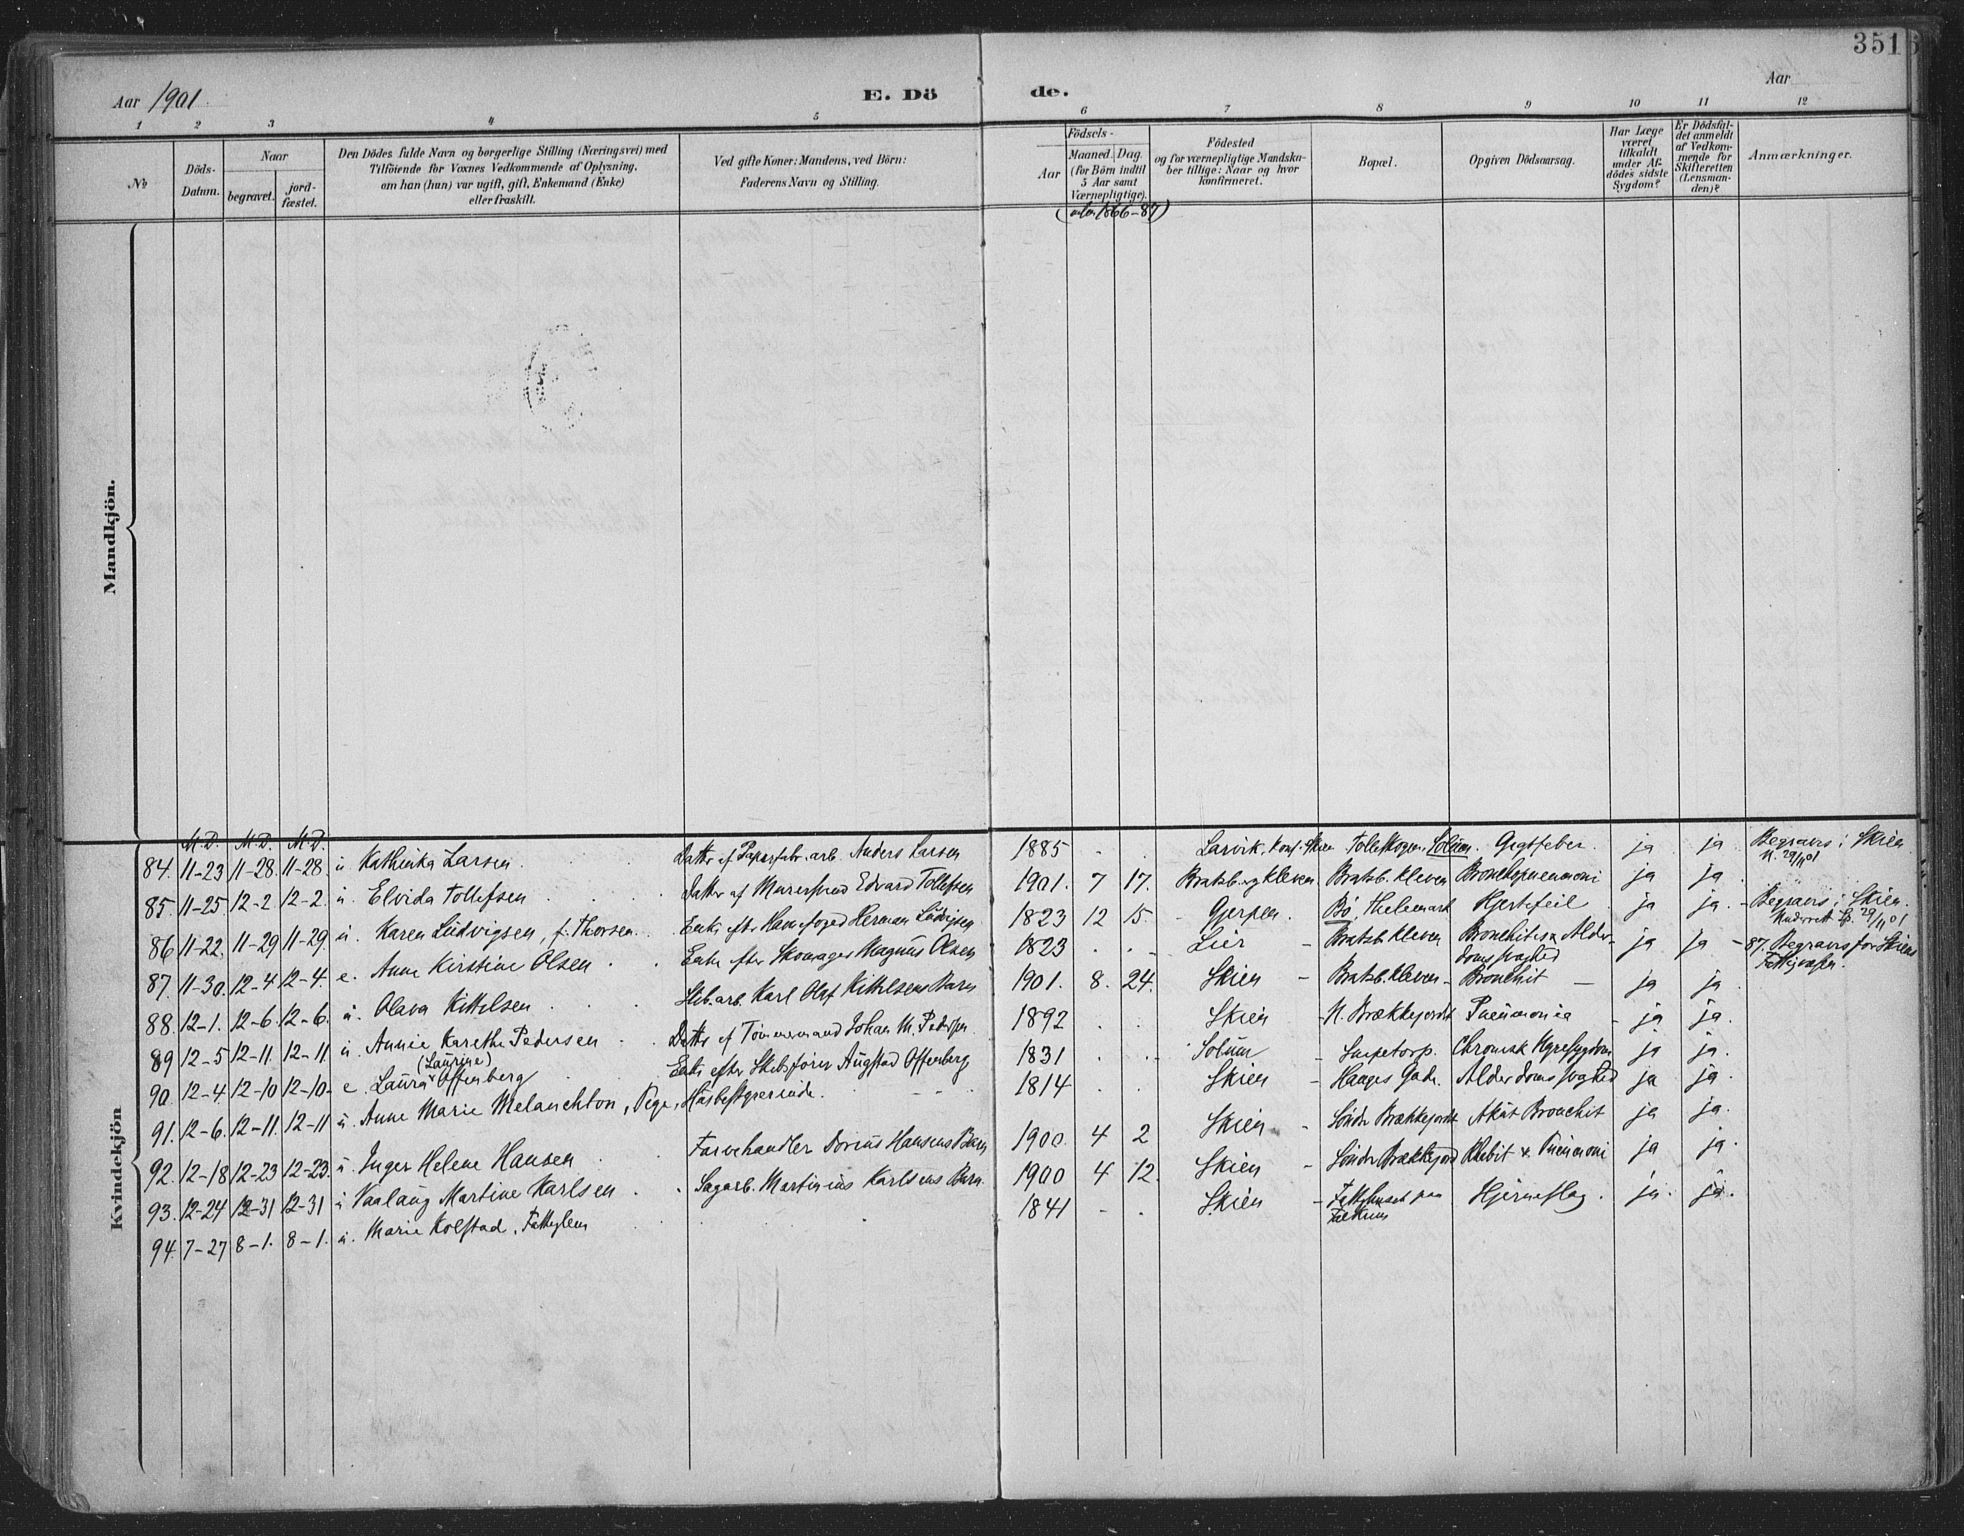 351
Aar 1901. E. Dö de. Aar
1 2 3 4 5 6 7 8 9 10 11 12
No
Döds-Datum.
Naar
begravet.
jord-fæstet.
Den Dödes fulde Navn og borgerlige Stilling (Næringsvei) med
Tilföiende for Voxnes Vedkommende af Oplysning,
om han (hun) var ugift, gift, Enkemand (Enke)
eller fraskilt.
Ved gifte Koner: Mandens, ved Börn:
Faderens Navn og Stilling.
Födsels-
Aar
Maaned. Dag.
(for Börn indtil
5 Aar samt
Værnepligtige).
(1866-87)
Födested
og for værnepligtige Mandska-
ber tillige: Naar og hvor
konfirmeret.
Bopæl.
Opgiven Dödsaarsag.
Har Læge
været
tilkaldt
under Af-
dödes sidste
Sygdom?
Er Dödsfal-
det anmeldt
af Vedkom-
mende for
Skifteretten
(Lensman-
den)?
Anmærkninger.
Mandkjön.
Kvindekjön
M.D. M.D. M.D.
84. 11-23 11-28. 11-28. u Kathinka Larsen Datter af Papirfabr. arb. Anders Larsen 1885 Larvik, Konf. Skien Tollefskogen Solum. Gigtfeber. ja ja Begravet i Skien 29/11 01
85. 11-25 12-2 12-2. u. Elvida Tollefsen Datter af Murersvend Edvard Tollefsen 1901. 7 17. Bratsbergkleven Bratsb. kleven Bronchopneumoni ja ja.
86 11-22. 11-29 11-29 Karen Ludvigsen, f. Thorsen Enke efter Herman Ludvigsen 1823 12 15 Gjerpen. Bö, Thelemark Hjertefeil ja ja. Begravet i Skien. 29/11 01
87. 11-30. 12-4 12-4. e. Anne Kirstine Olsen Enke efter Skomager Magnus Olsen 1823 Lier Bratsb. kleven Bronchit og Alder-
domssvaghed ja ja 87. Begravet for Skiens
Fattigvæsen.
88. 12-1. 12-6. 12-6. u. Olava Kittelsen arb. Karl Olaf Kittelsens Barn 1901. 8. 24. Skien Bratsb. kleven Bronchit ja ja.
89 12-5 12-11. 12-11 u Annie Karethe Pedersen Datter af Tömmermand Johan M. Pedersen 1892 Skien N. Brækkejordet Pneumonia ja ja.
90. 12-4 12-10 12-10 e. Laura (Laurine) Offenberg Enke efter Skibsförer Augstad Offenberg 1831 Solum Snipetorp. Chronisk Nyresygdom ja ja.
91. 12-6. 12-11. 12-11 u. Anne Marie Melanchton, Pige, Husbestyrerinde. 1814 Skien Haages Gade. Alderdomssvaghed ja ja.
92. 12-18 12-23 12-23. u. Inger Helene Hansen Farvehandler Dorius Hansens Barn 1900. 4 2 Skien Söndr Brækkejordet Akut Bronchit ja ja.
93. 12-24 12-31 12-31 u Vaalaug Martine Karlsen Sagarb. Martinius Karlsens Barn 1900 4 12. Skien Söndr Brækkejord Pneumoni ja ja.
94. 7-27 8-1. 8-1. u. Marie Kolstad. Fattiglem 1841 Skien Fattighuset paa
Falkum Hjerneslag. ja. ja.